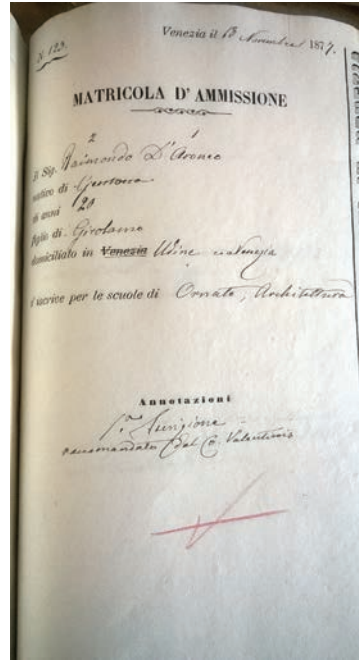 N. 123.
Venezia il 13 Novembre 1877.
MATRICOLA D' AMMISSIONE
2 1
il Sig. Raimondo D'Aronco
nativo di Gemona
di anni 20
figlio di Girolamo
domiciliato in Venezia Udine Venezia
s' iscrive per le scuole di Ornato, Architettura
Annotazioni
1.ª Iscrizione
raccomandato dal Co. Valentinis